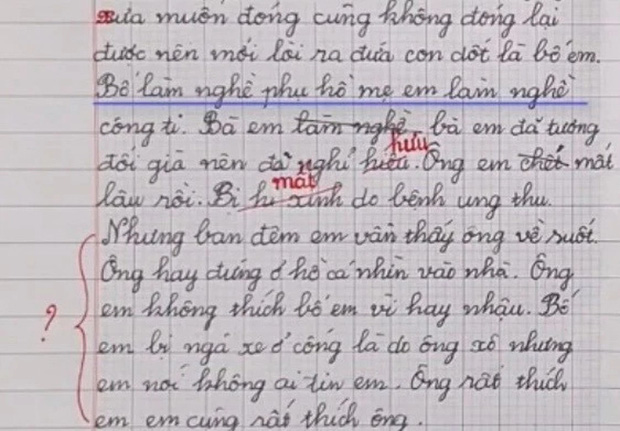 xưa muốn đóng cũng không đóng lại
được nên mới lòi ra đứa con dốt là bố em.
Bố làm nghề phụ hồ mẹ em làm nghề
công ti. Bà em làm nghề, bà em đã tương
đối già nên đã nghỉ hiêu. Ông em chết mất
hưu
lâu rồi. Bị hi sinh do bệnh ung thư.
mất
Nhưng ban đêm em vẫn thấy ông về suốt.
Ông hay đứng ở hồ cá nhìn vào nhà. Ông
em không thích bố em vì hay nhậu. Bố
? em bị ngã xe ở cổng là do ông xô nhưng
em nói không ai tin em. Ông rất thích
em em cũng rất thích ông.